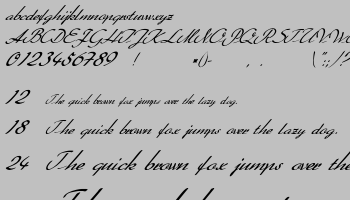 abcdefghijklmnopqrstuvwxyz
ABCDEFGHIJKLMNOPQRSTUVW
0123456789 ! "() , . (":;/!?
12 The quick brown fox jumps over the lazy dog.
18 The quick brown fox jumps over the lazy dog.
24 The quick brown fox jumps over the